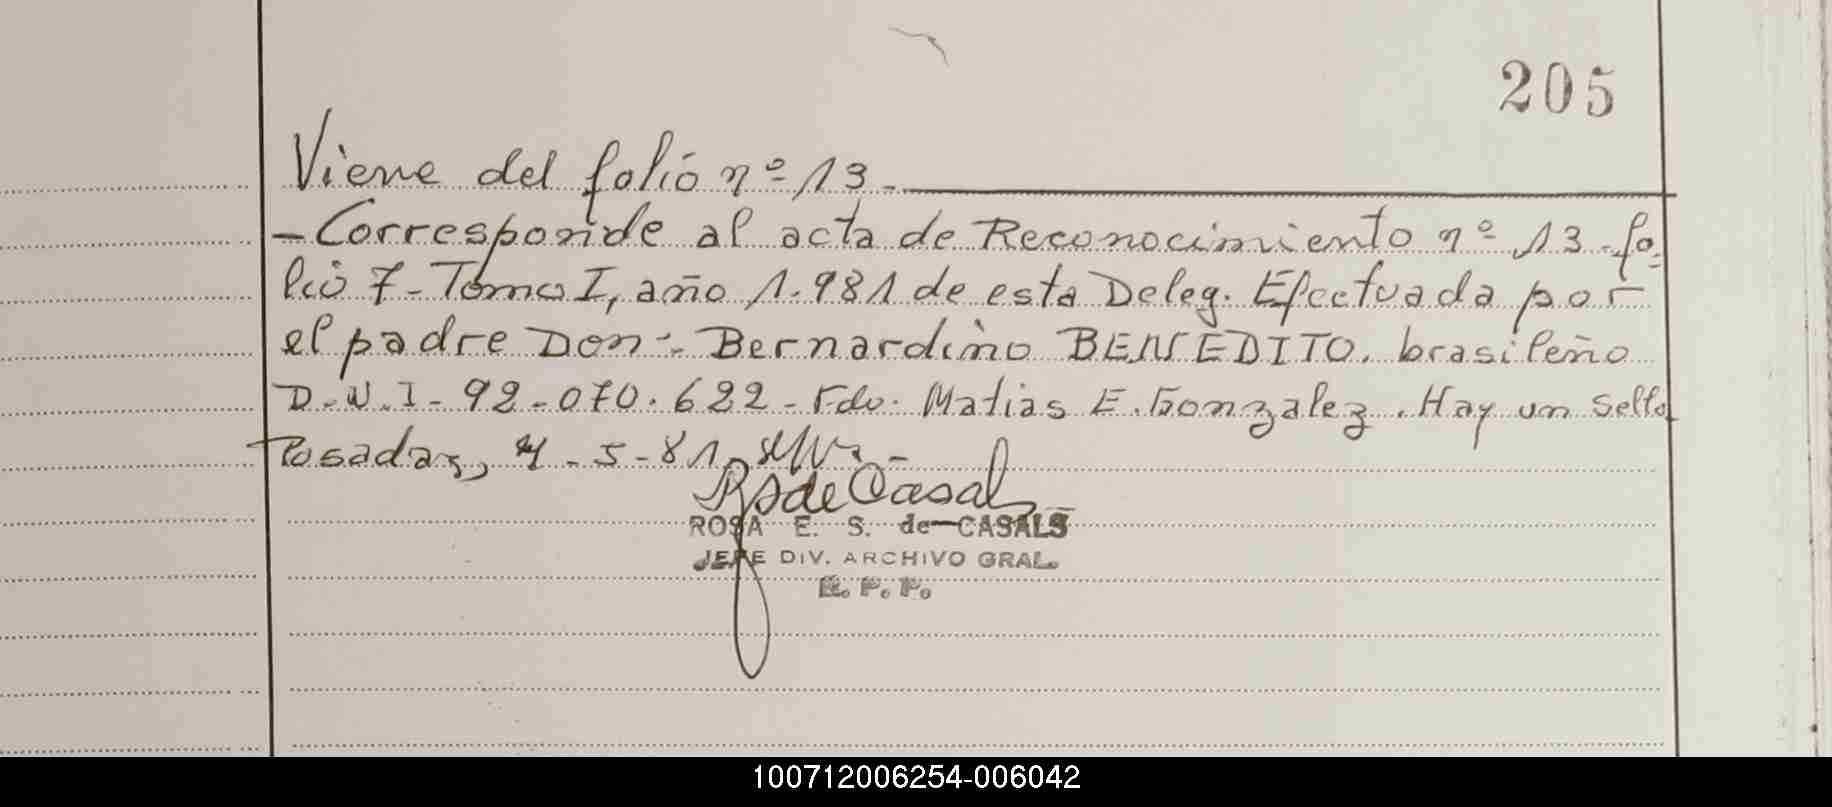 205
Viene del folio nº 13.
- Corresponde al acta de Reconocimiento nº 13 - fo-
lio 7 - Tomo I, año 1.981 de esta Deleg. Efectuada por
el padre Don :- Bernardino BENEDITO. brasileño
D.N.I - 92-070.622 - Fdo. Matias E. Gonzalez. Hay un sello
Posadas, 4-5-81
RS de Casals
ROSA E. S. de CASALS
JEFE DIV. ARCHIVO GRAL.
R. P. P.
100712006254-006042